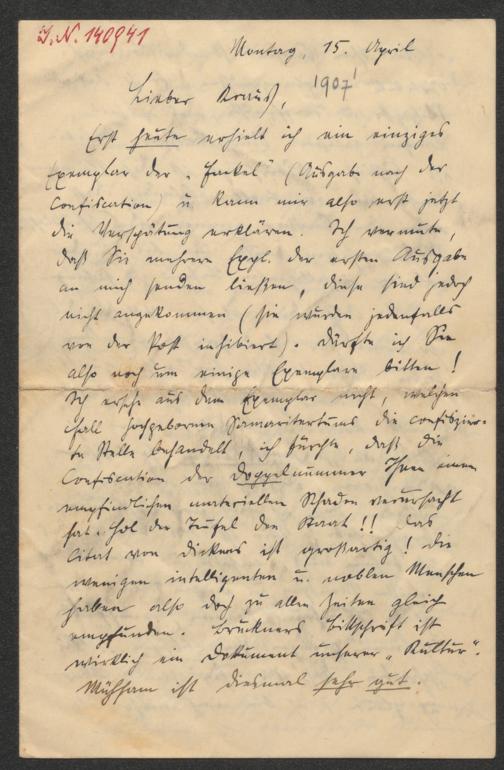 J.N. 140941
Montag, 15. April
1907
Lieber Kraus,
Erst heute erhielt ich ein einziges
Exemplar der „Fackel" (Ausgabe nach der
Confiscation) u kann mir also erst jetzt
die Verspätung erklären. Ich vermute,
daß Sie mehrere Expl. der ersten Ausgabe
an mich senden ließen, diese sind jedoch
nicht angekommen (sie wurden jedenfalls
von der Post inhibiert). Dürfte ich Sie
also noch um einige Exemplare bitten!
Ich ersehe aus dem Exemplar nicht, welchen
Fall hochgebornen Samaritertums die confiszier-
te Stelle behandelt, ich fürchte, daß die
Confiscation der Doppelnummer Ihnen einen
empfindlichen materiellen Schaden verursacht
hat. Hol der Teufel den Staat!! Das
Citat von Dickens ist großartig! Die
wenigen intelligenten u. noblen Menschen
haben also doch zu allen Zeiten gleich
empfunden. Bruckners Bittschrift ist
wirklich ein Dokument unserer „Kultur".
Mühsam ist diesmal sehr gut.